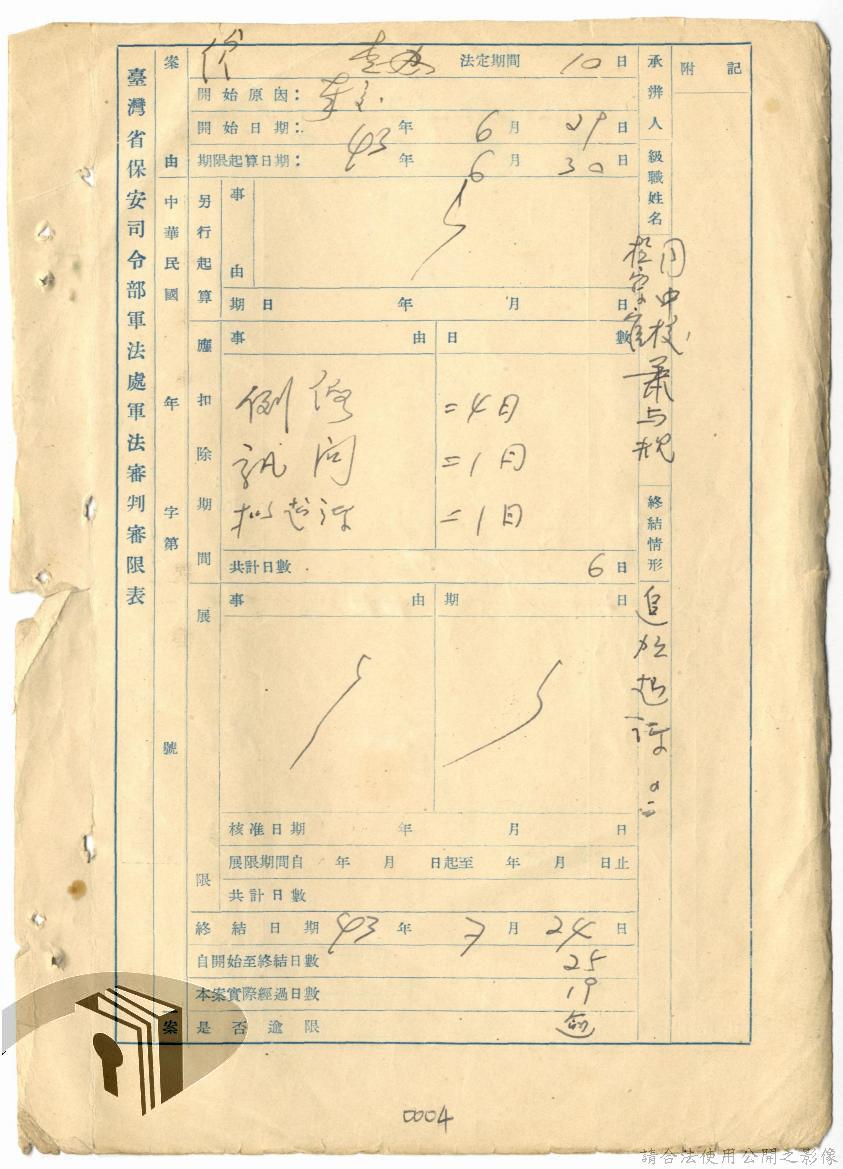 臺灣省保安司令部軍法處軍法審判審限表
案由
中華民國 年 字第 號
案
法定期間 10 日
開始原因：
開始日期： 43 年 6 月 29 日
期限起算日期： 43 年 6 月 30 日
另行起算
事由
期日 年 月 日
應扣除期間
事由 日數
例假 =4日
訊問 =1日
擬起訴 =1日
共計日數 6 日
展限
事由 期日
核准日期 年 月 日
展限期間自 年 月 日起至 年 月 日止
共計日數
終結日期 43 年 7 月 24 日
自開始至終結日數 25
本案實際經過日數 19
是否逾限 逾
承辦人級職姓名
同中校
檢察官
終結情形
起訴
附記
0004
請合法使用公開之影像